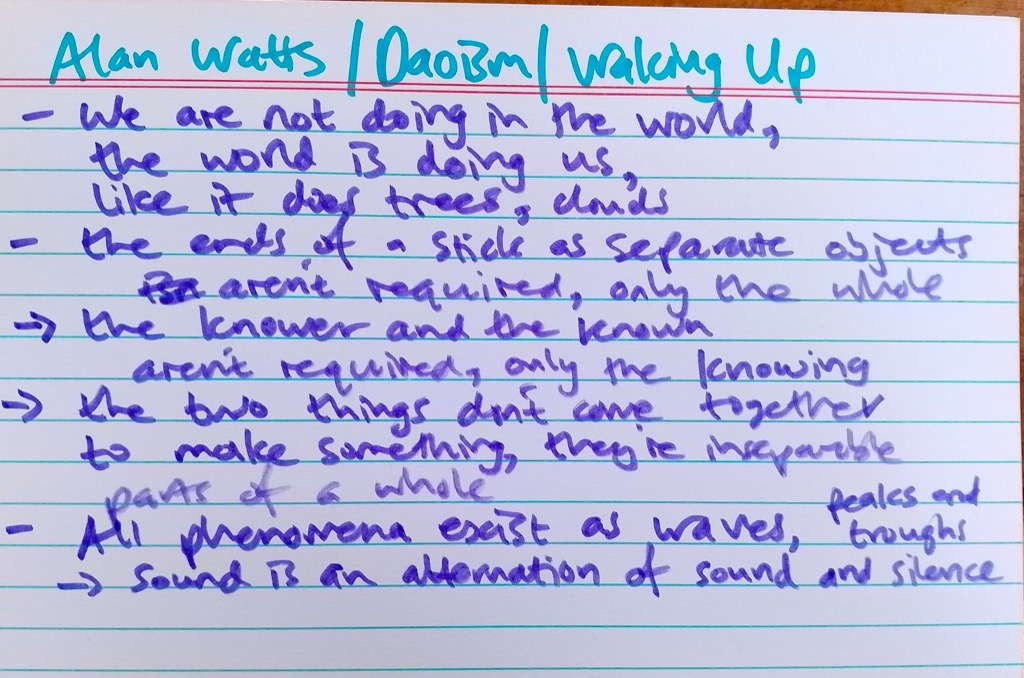 Alan Watts / Daoism / Waking Up
- We are not doing in the world,
the world is doing us,
like it does trees, clouds
- the ends of a stick as separate objects
aren't required, only the whole
→ the knower and the known
aren't required, only the knowing
→ the two things don't come together
to make something, they're inseparable
parts of a whole
- All phenomena exist as waves, peaks and
troughs
→ sound is an alternation of sound and silence